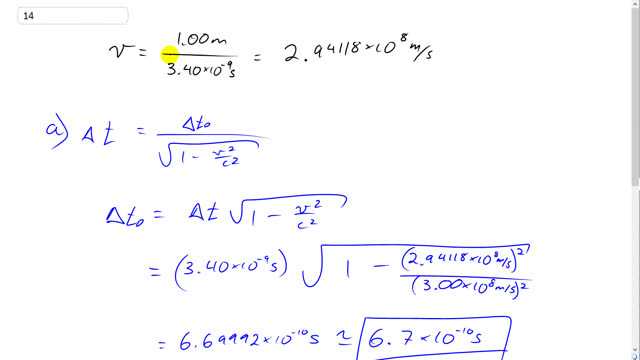 14
v = 1.00m / 3.40×10⁻⁹s = 2.94118×10⁸ m/s
a) Δt = Δt₀ / √(1 − v²/c²)
Δt₀ = Δt √(1 − v²/c²)
= (3.40×10⁻⁹s) √(1 − (2.94118×10⁸m/s)² / (3.00×10⁸m/s)²)
= 6.69992×10⁻¹⁰s ≃ 6.7×10⁻¹⁰s